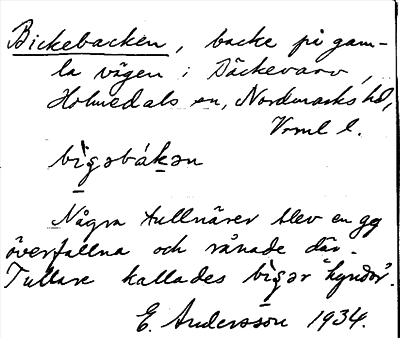 Bickebacken, backe på gam-
la vägen i Säckevarv,
Holmedals sn, Nordmarks hd,
Vrml l.
bìgəbákən
Några tullnärer blev en gg
överfallna och rånade där.
Tullare kallades bìgər "hyndor".
E. Andersson 1934.